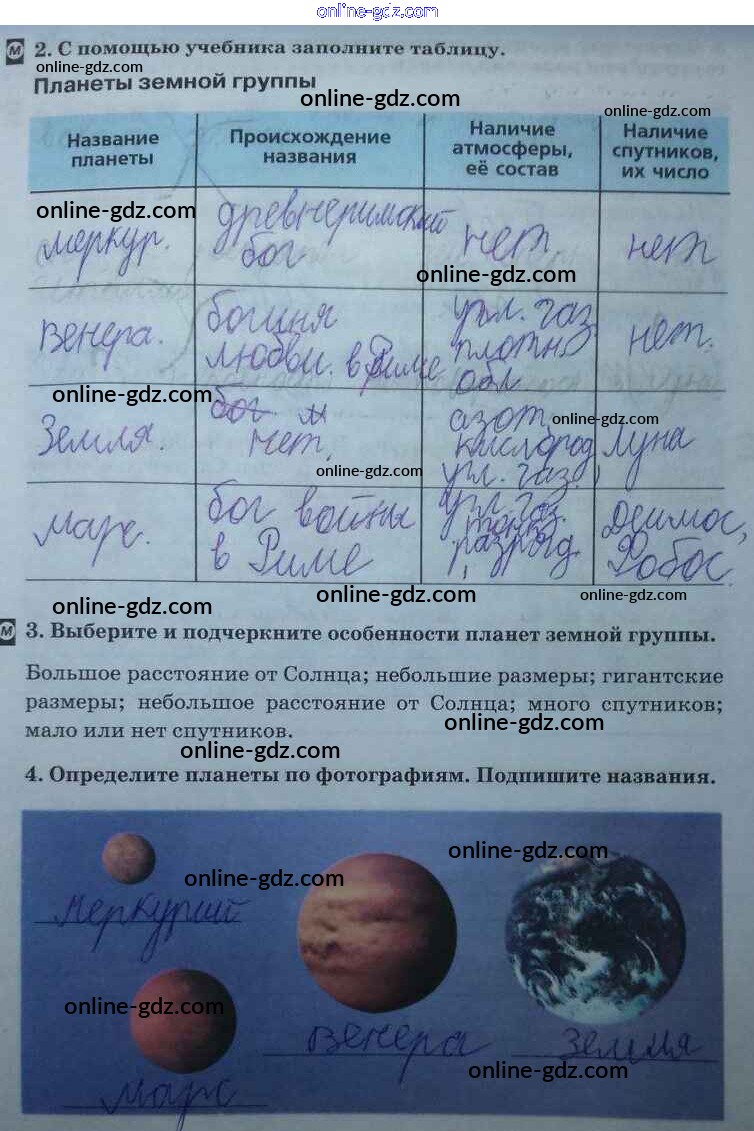 online-gdz.com
2. С помощью учебника заполните таблицу.
online-gdz.com
Планеты земной группы
online-gdz.com
online-gdz.com
Название планеты
Происхождение названия
Наличие атмосферы, её состав
Наличие спутников, их число
online-gdz.com
меркур.
древнеримский
бог
нет
нет
online-gdz.com
венера.
богиня
любви. в Риме
угл. газ
плотн
обл
нет.
online-gdz.com
Земля.
бог. м
нет,
азот,
кислород
угл. газ.
online-gdz.com
Луна
online-gdz.com
марс.
бог войны
в Риме
угл. газ.
разряд
Деимос,
Фобос.
online-gdz.com
online-gdz.com
online-gdz.com
М 3. Выберите и подчеркните особенности планет земной группы.
Большое расстояние от Солнца; небольшие размеры; гигантские
размеры; небольшое расстояние от Солнца; много спутников;
online-gdz.com
мало или нет спутников.
online-gdz.com
4. Определите планеты по фотографиям. Подпишите названия.
online-gdz.com
online-gdz.com
меркурий
online-gdz.com
венера
земля
online-gdz.com
марс